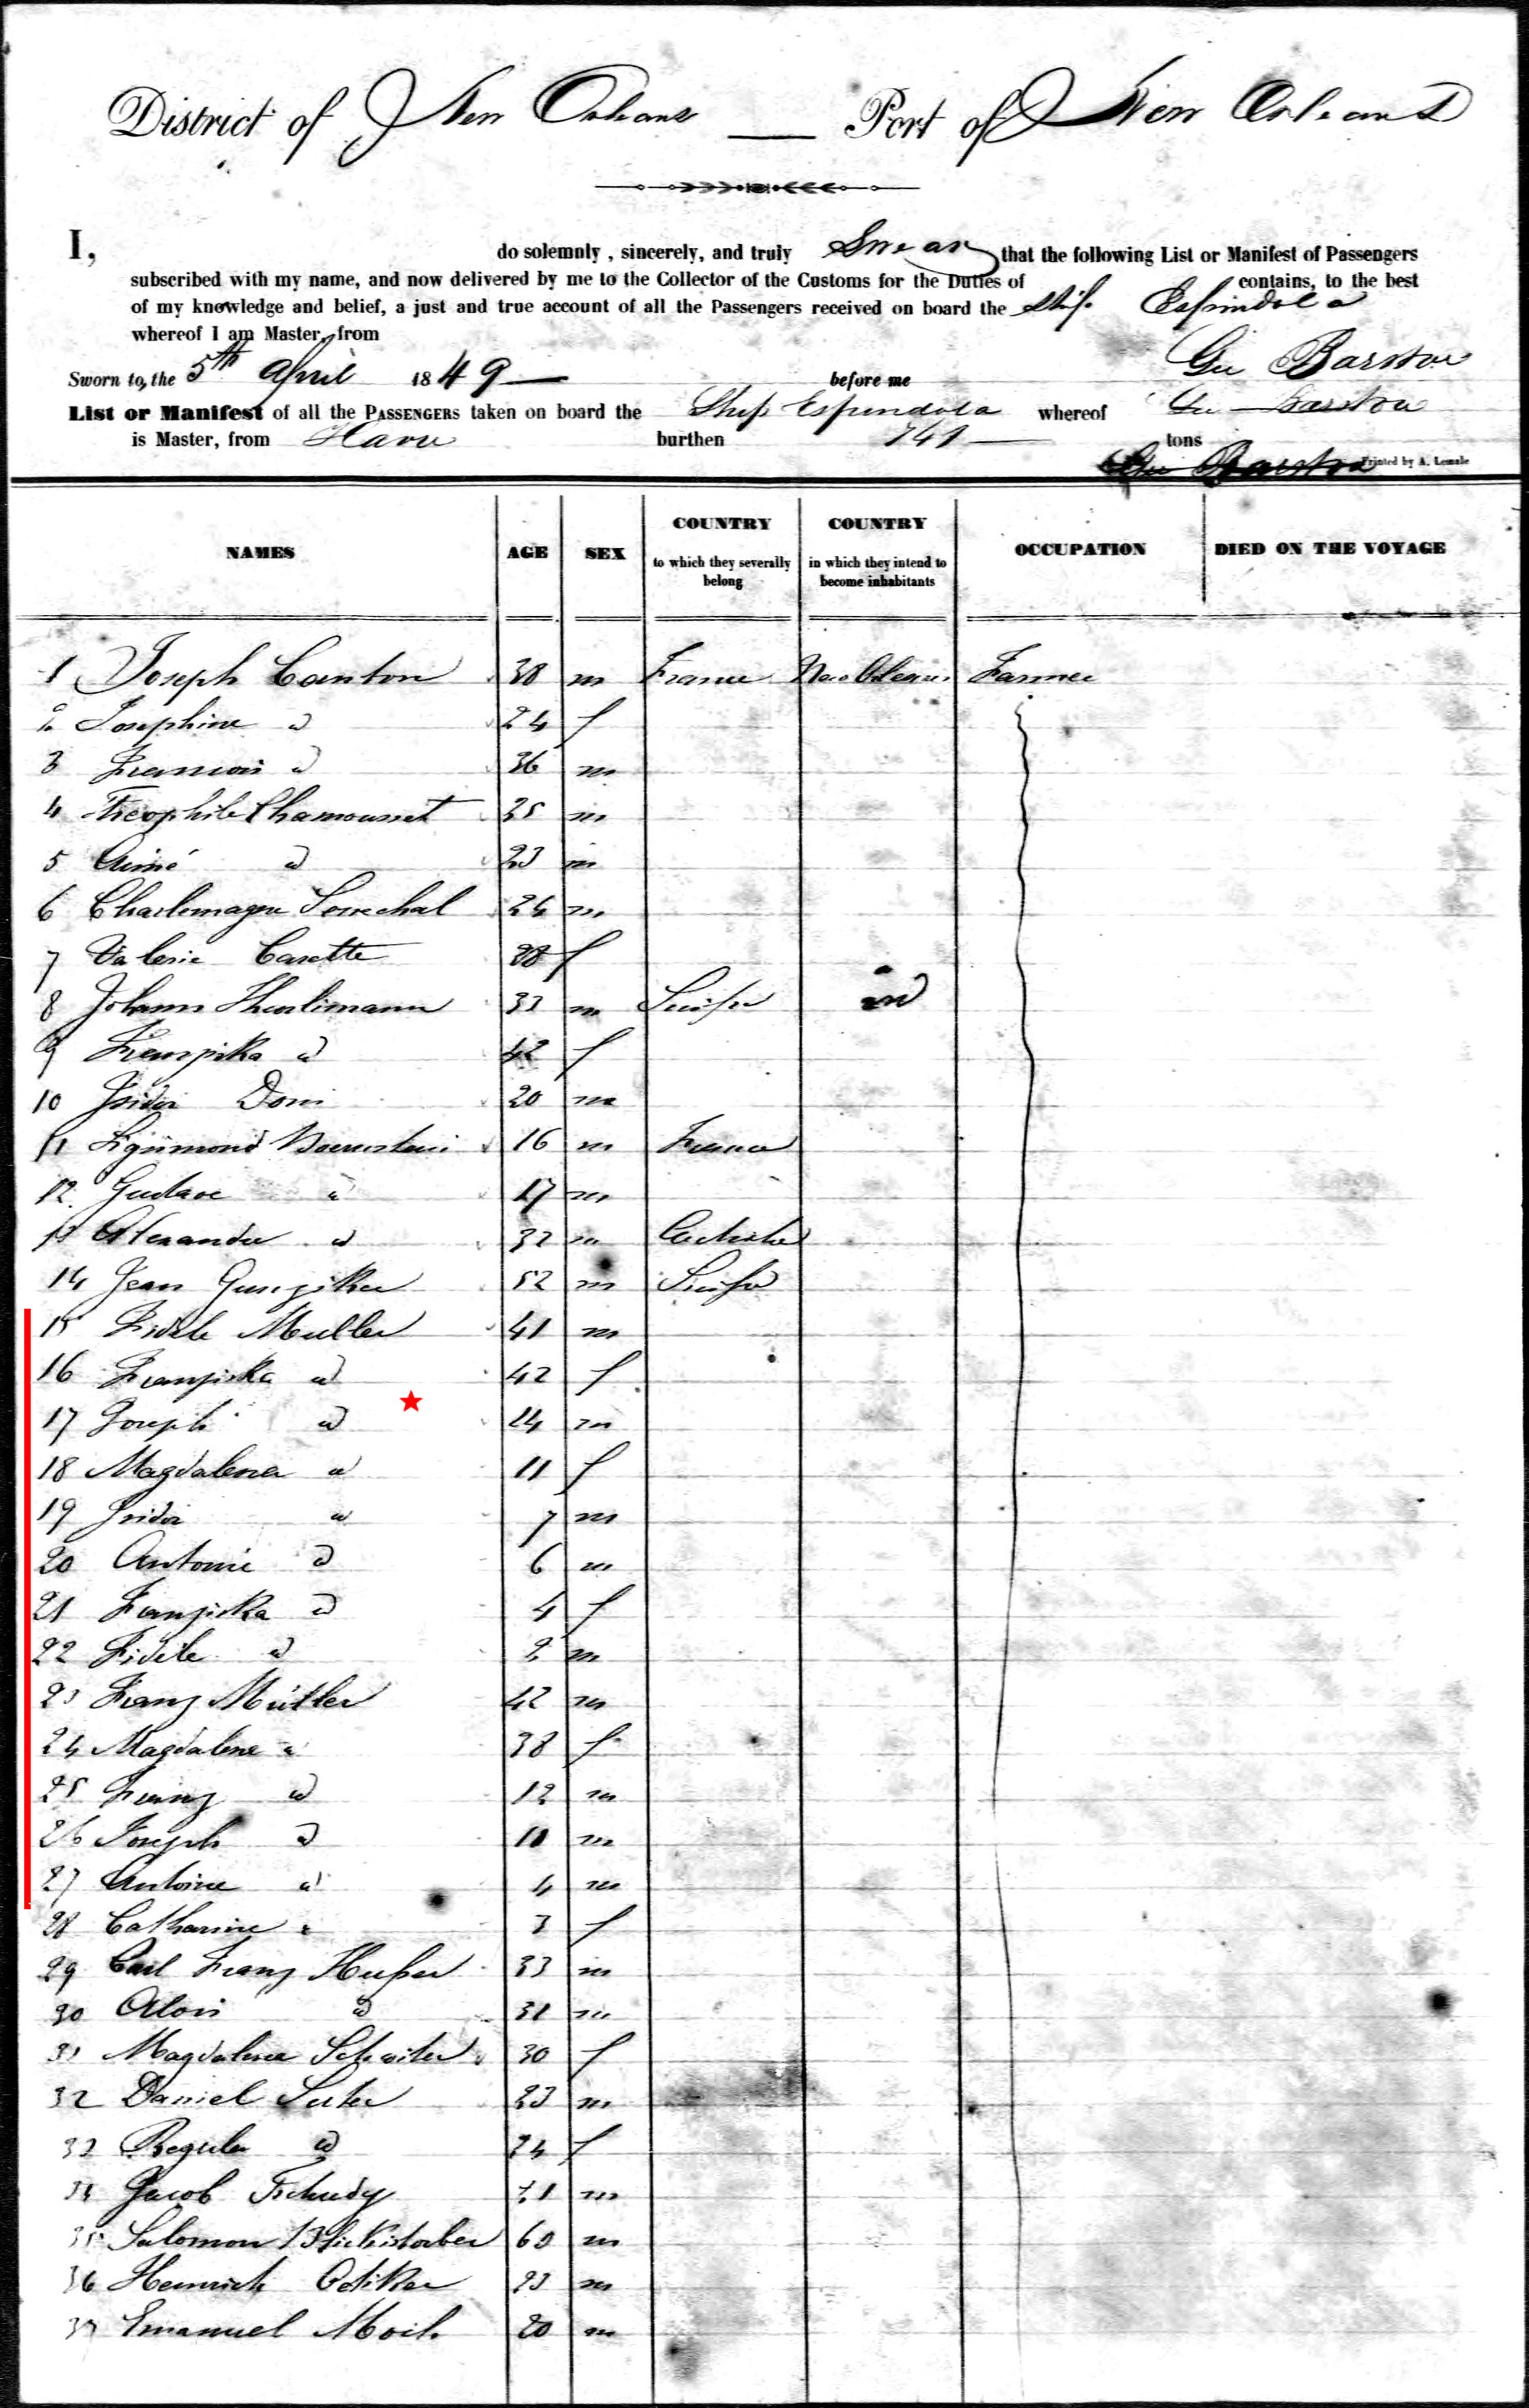 District of New Orleans — Port of New Orleans
I, do solemnly, sincerely, and truly Swear that the following List or Manifest of Passengers
subscribed with my name, and now delivered by me to the Collector of the Customs for the Duties of contains, to the best
of my knowledge and belief, a just and true account of all the Passengers received on board the Ship Espindola
whereof I am Master, from
Geo Barstow
Sworn to, the 5th April 1849 — before me
List or Manifest of all the PASSENGERS taken on board the Ship Espindola whereof Geo Barstow
is Master, from Havre burthen tons
Geo Barstow
Printed by A. Lemale
NAMES AGE SEX COUNTRY to which they severally belong COUNTRY in which they intend to become inhabitants OCCUPATION DIED ON THE VOYAGE
1 Joseph Canton 38 m France New Orleans Farmer
2 Josephine d 24 f
3 Francois d 36 m
4 Theophile Chamousset 25 m
5 Aimé d 23 m
6 Charlemagne 26 m
7 Valerie Casette 38 f
8 Johann Thurlimann 33 m Suisse id
9 Franziska d 42 f
10 Isidor Dom 20 m
11 Sigismond 16 m France
12 Gustave d 17 m
13 Alexandre d 32 m
14 Jean Gunziker 52 m Suisse
15 Fidele Muller 41 m
16 Franziska d 42 f
17 Joseph d 14 m
18 Magdalena d 11 f
19 Isidor d 7 m
20 Antonie d 6 m
21 Franziska d 4 f
22 Fidele d 2 m
23 Franz Müller 42 m
24 Magdalena d 38 f
25 Franz d 12 m
26 Joseph d 10 m
27 Antoine d 4 m
28 Catharine d 3 f
29 Carl Franz Husser 33 m
30 Alois d 31 m
31 Magdalena Schwiter 30 f
32 Daniel Suter 23 m
33 Regula d 24 f
34 Jacob Tschudy 21 m
35 Salomon 60 m
36 Heinrich Odiker 23 m
37 Emanuel Moch 20 m